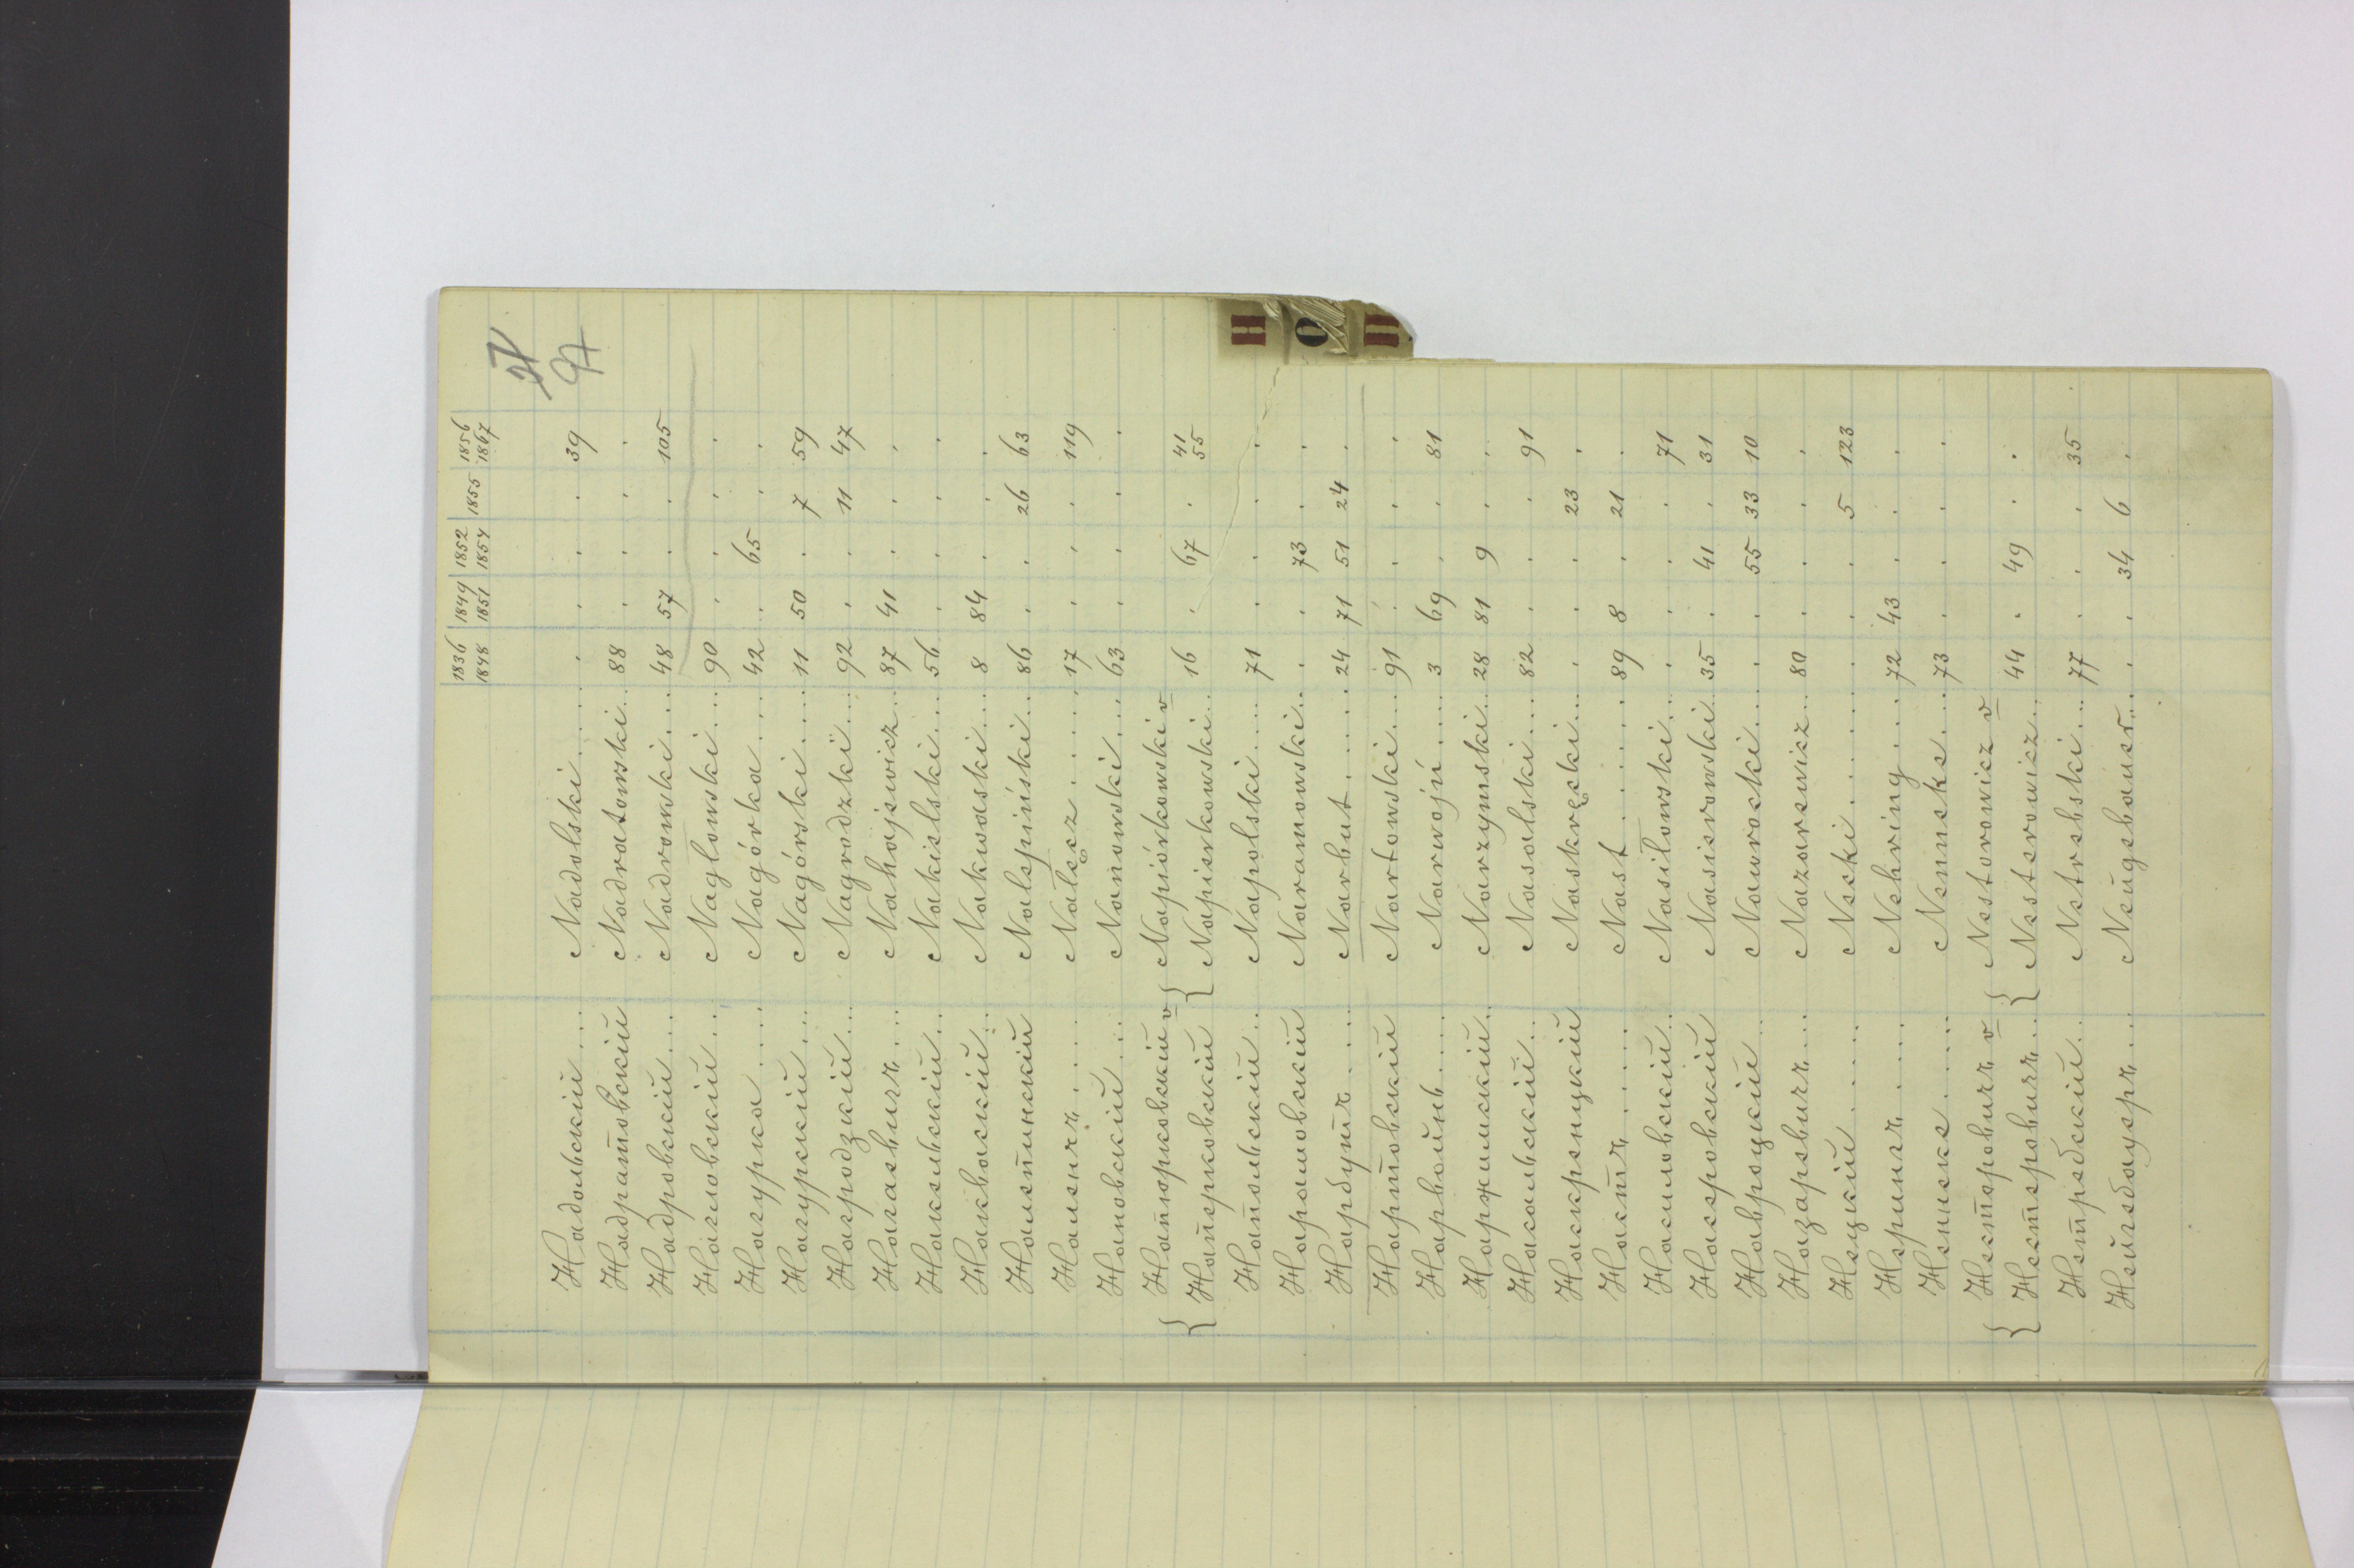 97
1836 1848 | 1849 1851 | 1852 1854 | 1855 | 1856 1867
Надольскій .... Nadolski .... . . . . 39
Надратовскій Nadratowski ... 88 . . . .
Надровскій ... Nadrowski ... 48 57 . . 105
Нагловскій ... Nagłowski ... 90 . . . .
Нагурка .... Nagórka .... 42 . 65 . .
Нагурскій .... Nagórski .... 11 50 . 7 59
Нагродзкій ... Nagrodzki ... 92 . . 11 47
Нагаевичъ ... Nahajewicz ... 87 41 . . .
Накельскій ... Nakielski ... 56 . . . .
Наквасκій ... Nakwaski ... 8 84 . . .
Налепинскій Nalepiński ... 86 . . 26 63
Наленчъ .... Nałęcz .... 17 . . . 119
Нановскій ... Nanowski ... 63 . . . .
Напюрковскій v { Napiórkowski v
{ Наперковскій { Napierkowski ... 16 . 67 . 41 55
Напольскій ... Napolski ... 71 . . . .
Нарамовскій Naramowski ... . . 73 . .
Нарбутъ .... Narbut .... 24 71 51 24 .
Нартовскій Nartowski ... 91 . . . .
Нарвойнь .... Narwojń .... 3 69 . . 81
Наржимскій .. Narzymski ... 28 81 9 . .
Насальскій ... Nasalski ... 82 . . . 91
Наскренцкій Naskręcki ... . . . 23 .
Настъ ..... Nast ..... 89 8 . 21 .
Насиловскій .. Nasiłowski ... . . . . 71
Насеровскій Nasierowski ... 35 . 41 . 31
Навроцкій Nawrocki .... . . 55 33 10
Назаревичъ ... Nazarewicz ... 80 . . . .
Нецкій .... Necki ..... . . . 5 123
Нерингъ .... Nehring .... 72 43 . . .
Ненске .... Nenske ... 73 . . . .
Несторовичъ v { Nestorowicz v
{ Нестеровичъ .. { Nesterowicz .. 44 . 49 . .
Нетребскій .. Netrebski ... 77 . . . 35
Нейгебауеръ ... Neugebauer ... . . 34 6 .
Н
О
П